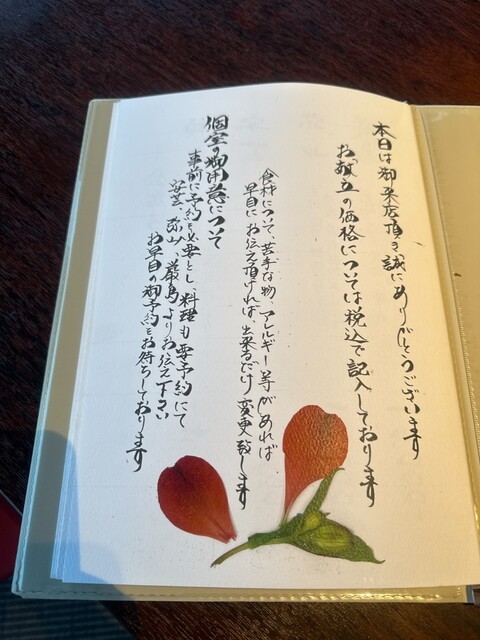 本日は御来店頂き誠にありがとうございます
お献立の価格については税込で記入しております
食材について、苦手な物、アレルギー等があれば
早目にお伝え頂ければ、出来るだけ変更致します
個室の御用意について
事前に予約を必要とし、料理も要予約にて
安芸、弥山、厳島よりお伝え下さい
お早目の御予約をお待ちしております